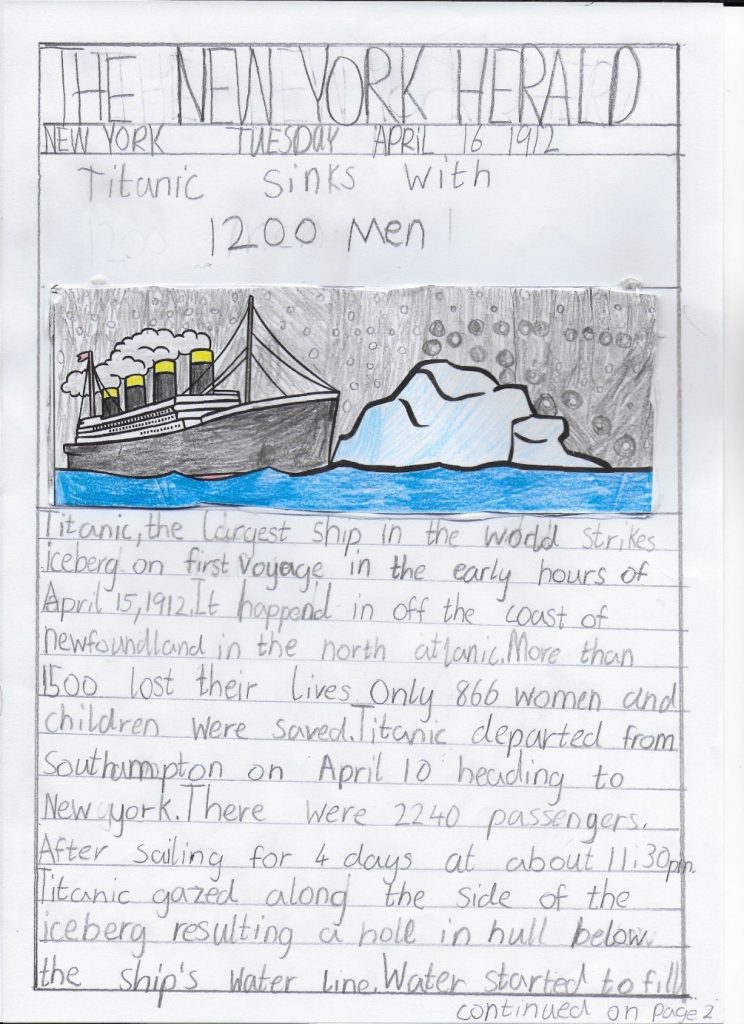 THE NEW YORK HERALD
NEW YORK TUESDAY APRIL 16 1912
Titanic Sinks With
1200 Men
Titanic, the largest ship in the world strikes
iceberg on first voyage in the early hours of
April 15, 1912. It happend in off the coast of
newfoundland in the north atlanic. More than
1500 lost their lives. Only 866 women and
children were saved. Titanic departed from
Southampton on April 10 heading to
New york. There were 2240 passengers.
After sailing for 4 days at about 11:30pm.
Titanic gazed along the side of the
iceberg resulting a holl in hull below
the ship's water line. Water started to fill
continued on page 2